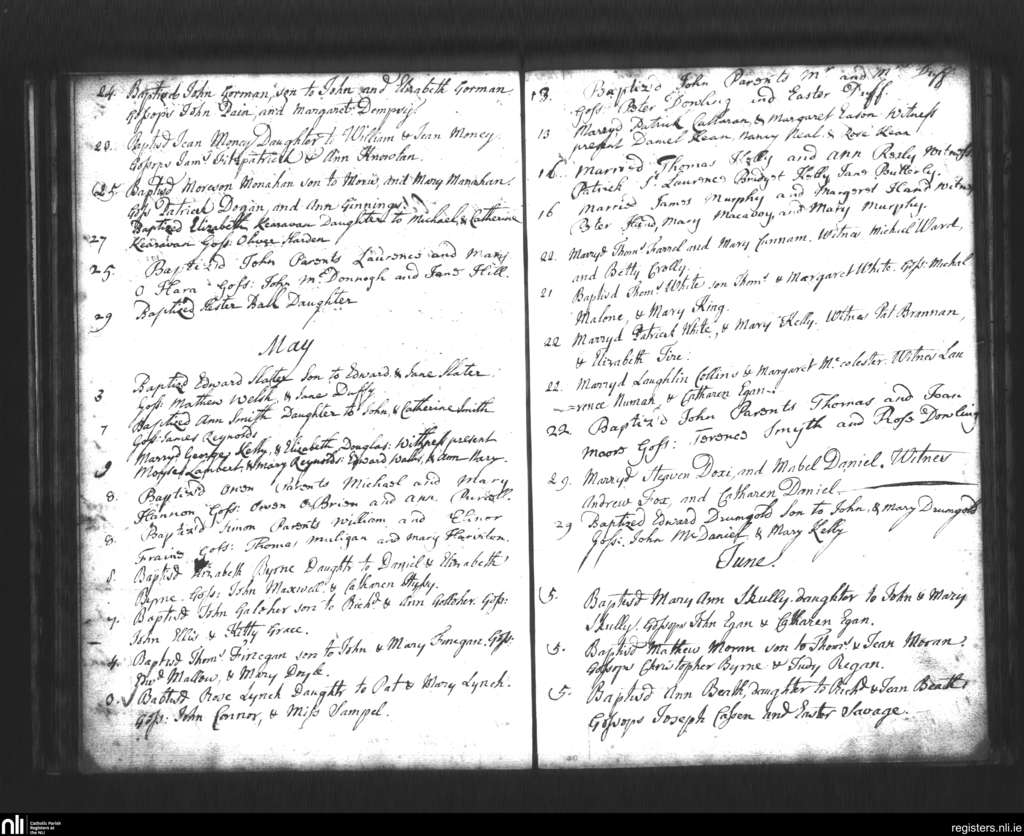 24. Baptized John Gorman, son to John and Elizabeth Gorman
Gossops John Dain, and Margaret Dempsy.
20. Baptisd Jean Money Daughter to William & Jean Money.
Gossops Jams Fitzpatrick & Ann Knowlan.
25. Baptisd Morrson Monahan son to Morris, and Mary Manahan.
Goss Patrick Dogan, and Ann Ginnings.
Baptized Elizabeth Kearavan Daughter to Michael, & Catherine
27 Kearavan Goss: Oliver Harden
25 Baptiz'd John Parents Laurence and Mary
O Hara Goss: John McDonnogh and Jane Hill.
29 Baptized Hester Ball Daughter
May
3 Baptized Edward Slater Son to Edward & Jane Slater.
Goss: Mathew Welsh, & Jane Duffy
7 Baptized Ann Smith Daughter to John, & Catherine Smith
Goss James Reynolds
9 Marryd George Kelly, & Elizabeth Douglas: Witness present
Moyses Lambert, & Mary Reynolds: Edward & Ann
8. Baptiz'd Owen Parents Michael and Mary
Hannon Goss: Owen O Brien and Ann Purcell
8 Baptiz'd Simon Parents William and Elinor
Goss: Thomas Muligan and Mary
8. Baptisd Elizabeth Byrne Daught to Daniel & Elizabeth
Byrne. Goss: John Maxwell, & Catharen
7. Baptisd John Galoher son to Richd & Ann Golloher. Goss:
John Ellis & Kitty Grace.
4. Baptisd Thoms Finegan son to John & Mary Finegan. Goss:
Edwd Mallow, & Mary Doyle.
0. Baptisd Rose Lynch Daughter to Pat & Mary Lynch.
Goss: John Connor, & Miss Sampel.
13. Baptiz'd John Parents Mr and Mrs Duff
Goss: Peter Dowling and Easter Duff
13 Marryd Patrick & Margaret Eason Witness
present Daniel Kean, Nancy Neal & Rose Kean
Married Thomas Kelly and Ann Rosly Witness:
Patrick St Laurence Bridget Kelly Jane Butterly.
16 Married James Murphy and Margret Hand Witness
Peter Hand, Mary and Mary Murphy.
22. Marryd Thoms Farrel and Mary Cunnam. Witnes Michael Ward,
and Betty Crolly
21 Baptisd Thoms White son Thoms & Margaret White. Goss: Michael
Malone, & Mary King.
22 Marryd Patrick White, & Mary Kelly. Witnes Pat Brannan,
& Elizabeth Fine:
22. Marryd Laughlin Collins & Margaret Mc colester. Witnes Lau
=rence Numan & Catharen Egan.
22 Baptiz'd John Parents Thomas and Joan
Moors Goss: Terence Smyth and Ross Dowling
29. Marryd Steven Doxi, and Mabel Daniel. Witnes
Andrew Fox, and Catharen Daniel.
29 Baptized Edward Drumgold Son to John, & Mary Drumgold
Goss: John McDaniel, & Mary Kelly
June.
5. Baptisd Mary Ann Skully daughter to John & Mary
Skully. Gossops John Egan & Catharen Egan.
5. Baptisd Mathew Moran son to Thoms & Jean Moran.
Gossops Christopher Byrne & Judy Regan.
5. Baptisd Ann Beath, daughter to Richd & Jean Beath.
Gossops Joseph Cassen and Easter Savage.
nli Catholic Parish Registers at the NLI
registers.nli.ie